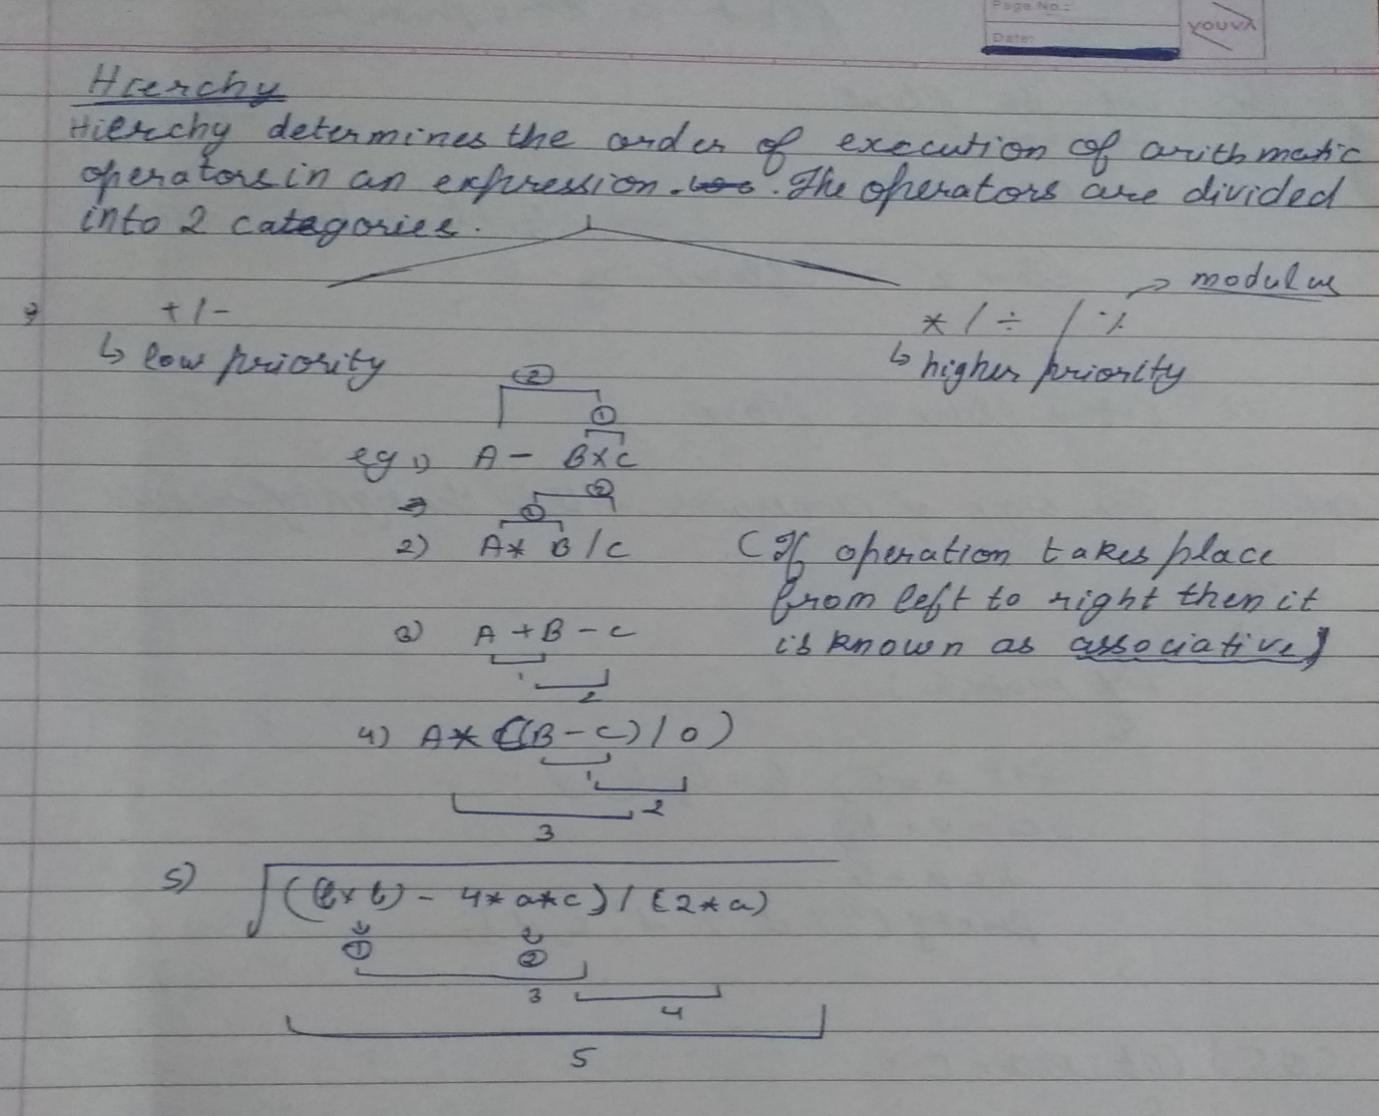 Page No.:
Date:
YOUVA
Hierchy
Hierchy determines the order of execution of arithmetic
operators in an expression. The operators are divided
into 2 categories.
modulus
+ / -
* / ÷ / %
↳ low priority
↳ higher priority
②
①
eg 1) A - B×C
① ②
2) A * B / C (If operation takes place
from left to right then it
3) A + B - C is known as associative)
1
2
4) A * ((B - C) / D)
1
2
3
5) √((b×b) - 4*a*c) / (2*a)
① ②
3
4
5